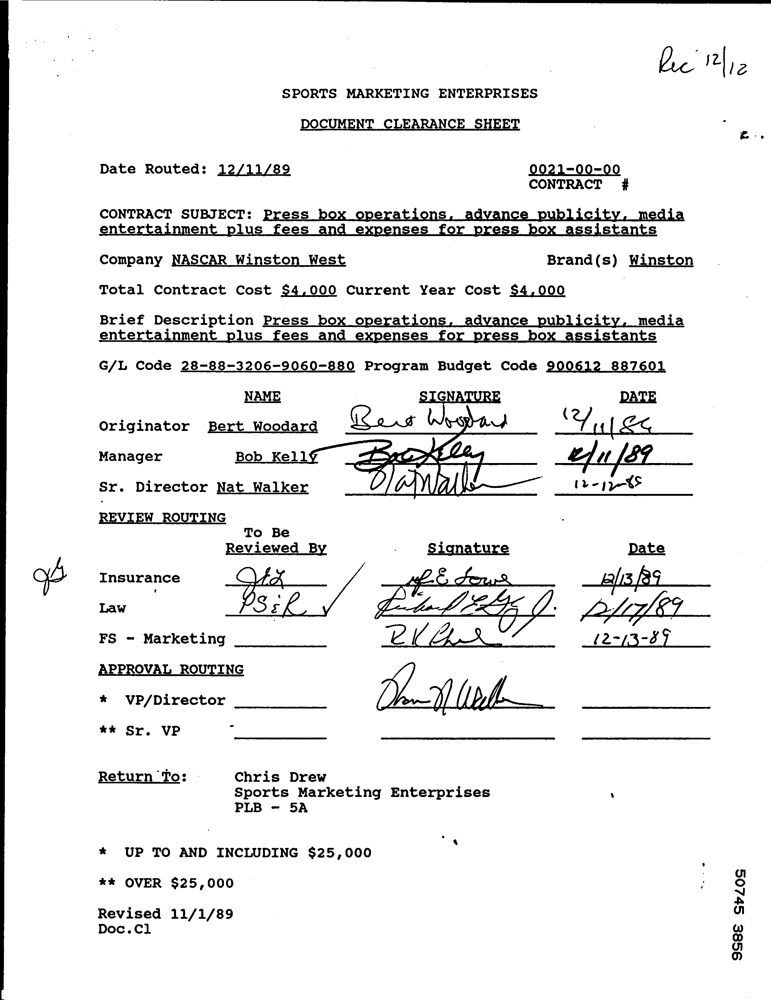 Rec 12/12
SPORTS MARKETING ENTERPRISES
DOCUMENT CLEARANCE SHEET
Date Routed: 12/11/89 0021-00-00
CONTRACT #
CONTRACT SUBJECT: Press box operations, advance publicity, media
entertainment plus fees and expenses for press box assistants
Company NASCAR Winston West Brand(s) Winston
Total Contract Cost $4,000 Current Year Cost $4,000
Brief Description Press box operations, advance publicity, media
entertainment plus fees and expenses for press box assistants
G/L Code 28-88-3206-9060-880 Program Budget Code 900612 887601
NAME SIGNATURE DATE
Originator Bert Woodard Bert Woodard 12/11/89
Manager Bob Kelly Bob Kelley 12/11/89
Sr. Director Nat Walker Nat Walker 12-12-89
REVIEW ROUTING
To Be
Reviewed By Signature Date
Insurance 12/13/89
Law PS&R 12/17/89
FS - Marketing 12-13-89
APPROVAL ROUTING
* VP/Director
** Sr. VP
Return To: Chris Drew
Sports Marketing Enterprises
PLB - 5A
* UP TO AND INCLUDING $25,000
** OVER $25,000
Revised 11/1/89
Doc.Cl
50745 3856